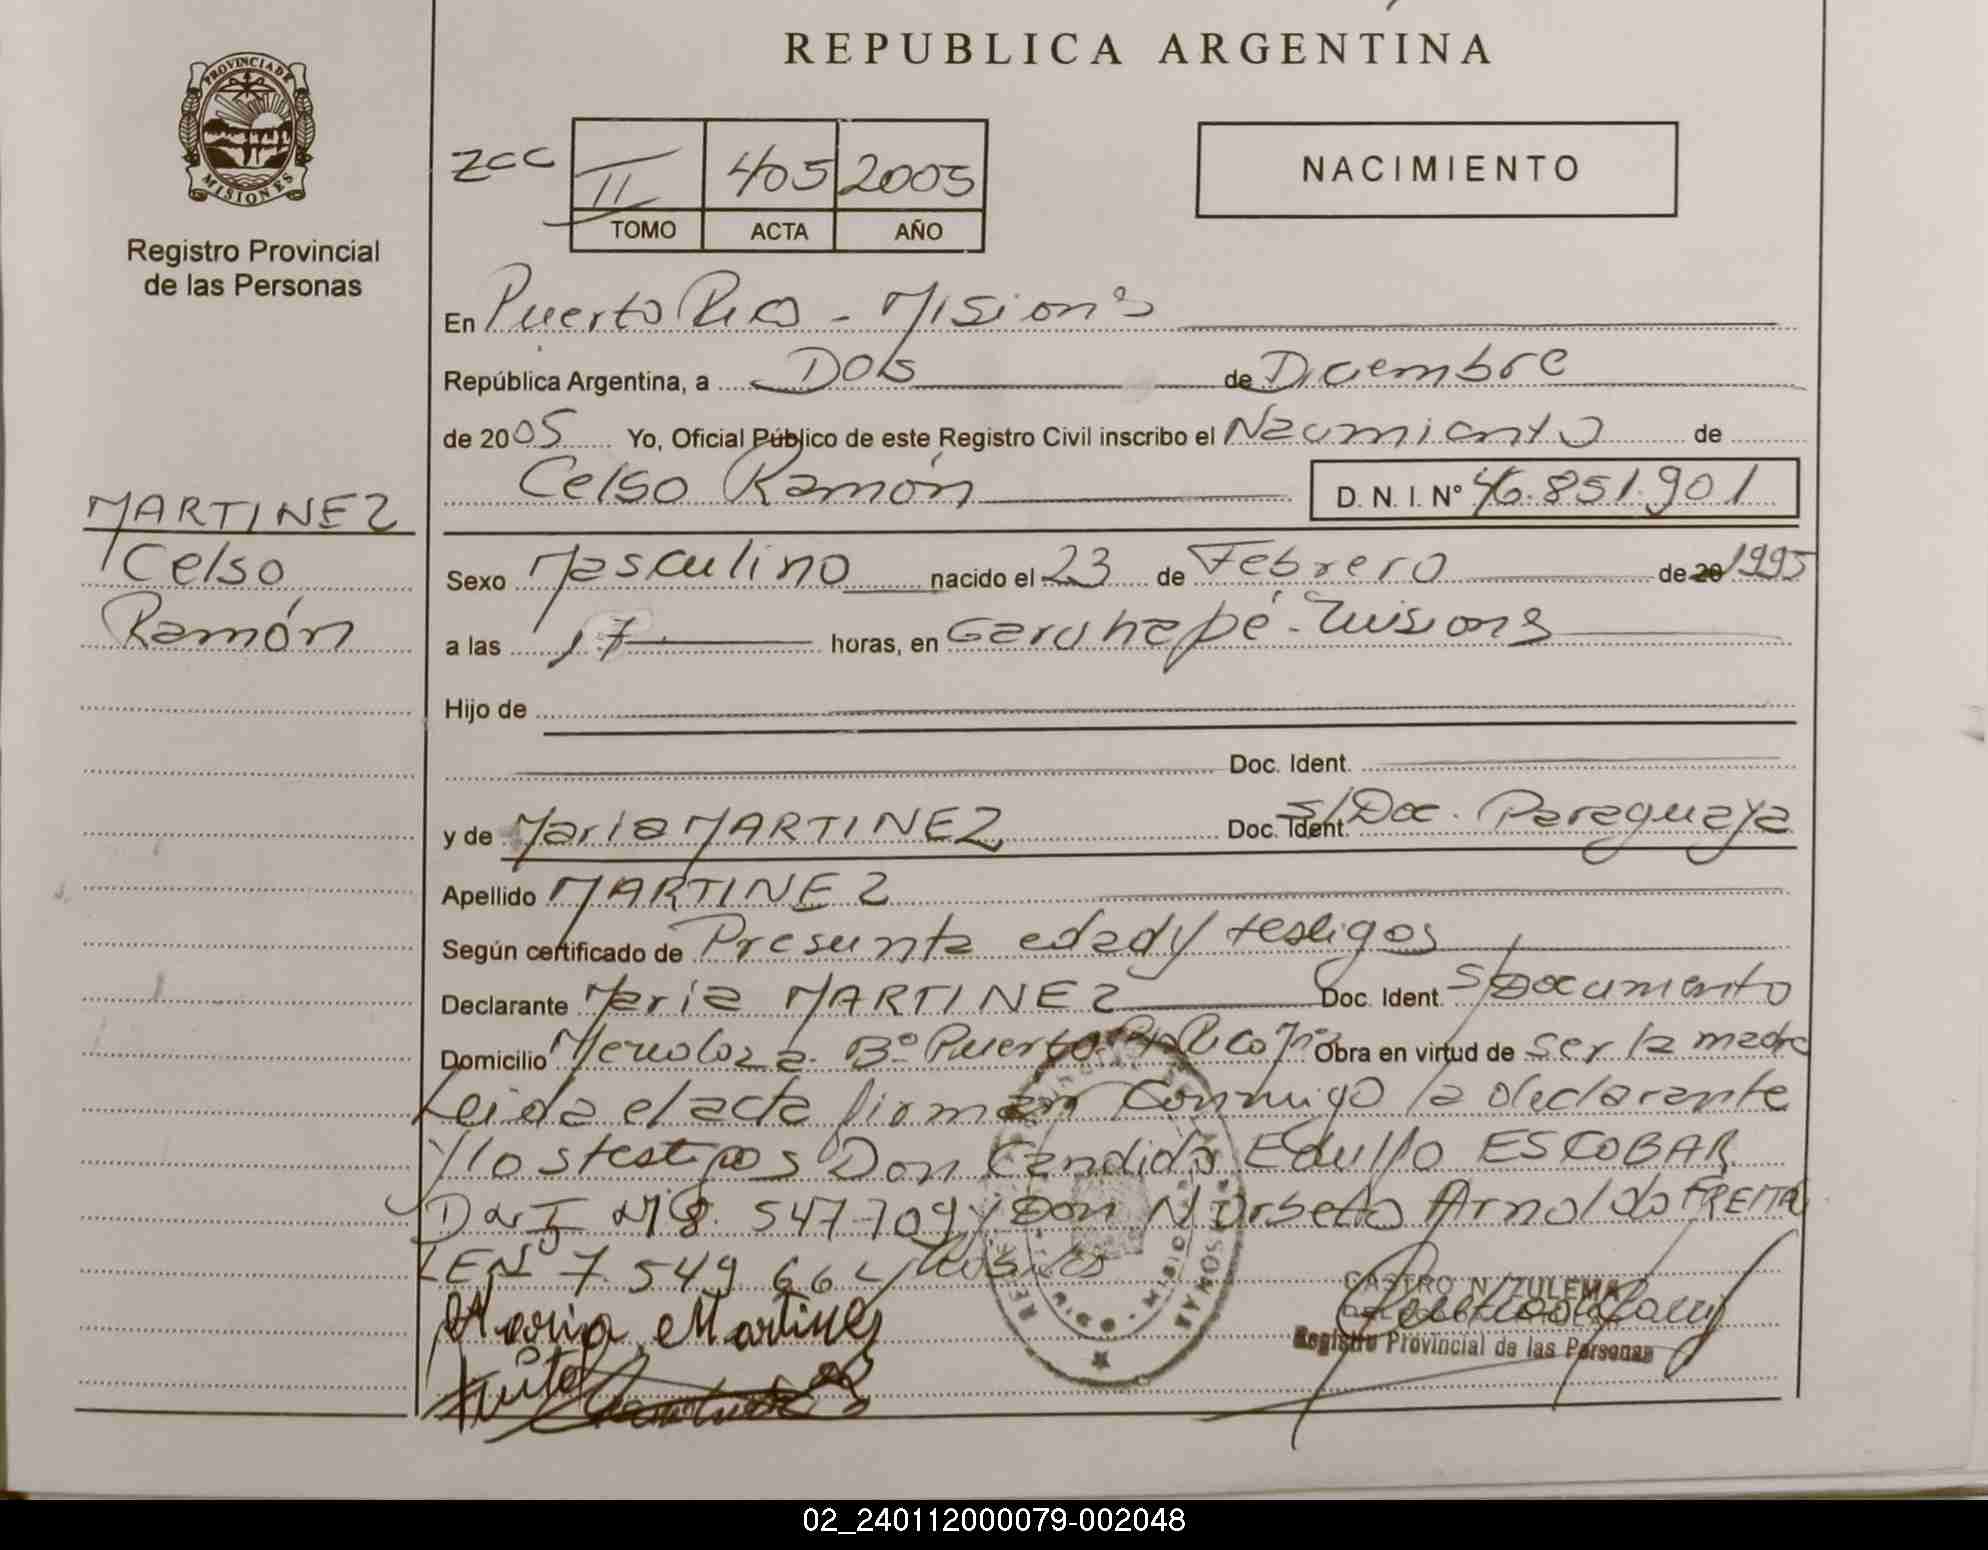 REPUBLICA ARGENTINA
PROVINCIA DE
MISIONES
Registro Provincial
de las Personas
ZCC
II 405 2005
TOMO ACTA AÑO
NACIMIENTO
En Puerto Rico - Misiones
República Argentina, a Dos de Diciembre
de 2005 Yo, Oficial Público de este Registro Civil inscribo el Nacimiento de
Celso Ramón D. N. I. Nº 46.851.901
MARTINEZ
Celso
Ramón
Sexo Masculino nacido el 23 de Febrero de 20 1995
a las 17 horas, en Garuhapé - Misiones
Hijo de
Doc. Ident.
y de Maria MARTINEZ Doc. Ident. s/Doc. Paraguaya
Apellido MARTINEZ
Según certificado de Presunta edad y testigos
Declarante Maria MARTINEZ Doc. Ident. s/Documento
Domicilio Mendoza Bº Puerto Rico Obra en virtud de ser la madre
Leida el acta firman conmigo la declarante
y los testigos Don Candido Edulfo ESCOBAR
D.N.I Nº 8.547.709 y Don Norberto Arnoldo FREITA
LE Nº 7.549.66
Maria Martinez
CASTRO N. ZULEMA
Registro Provincial de las Personas
02_240112000079-002048